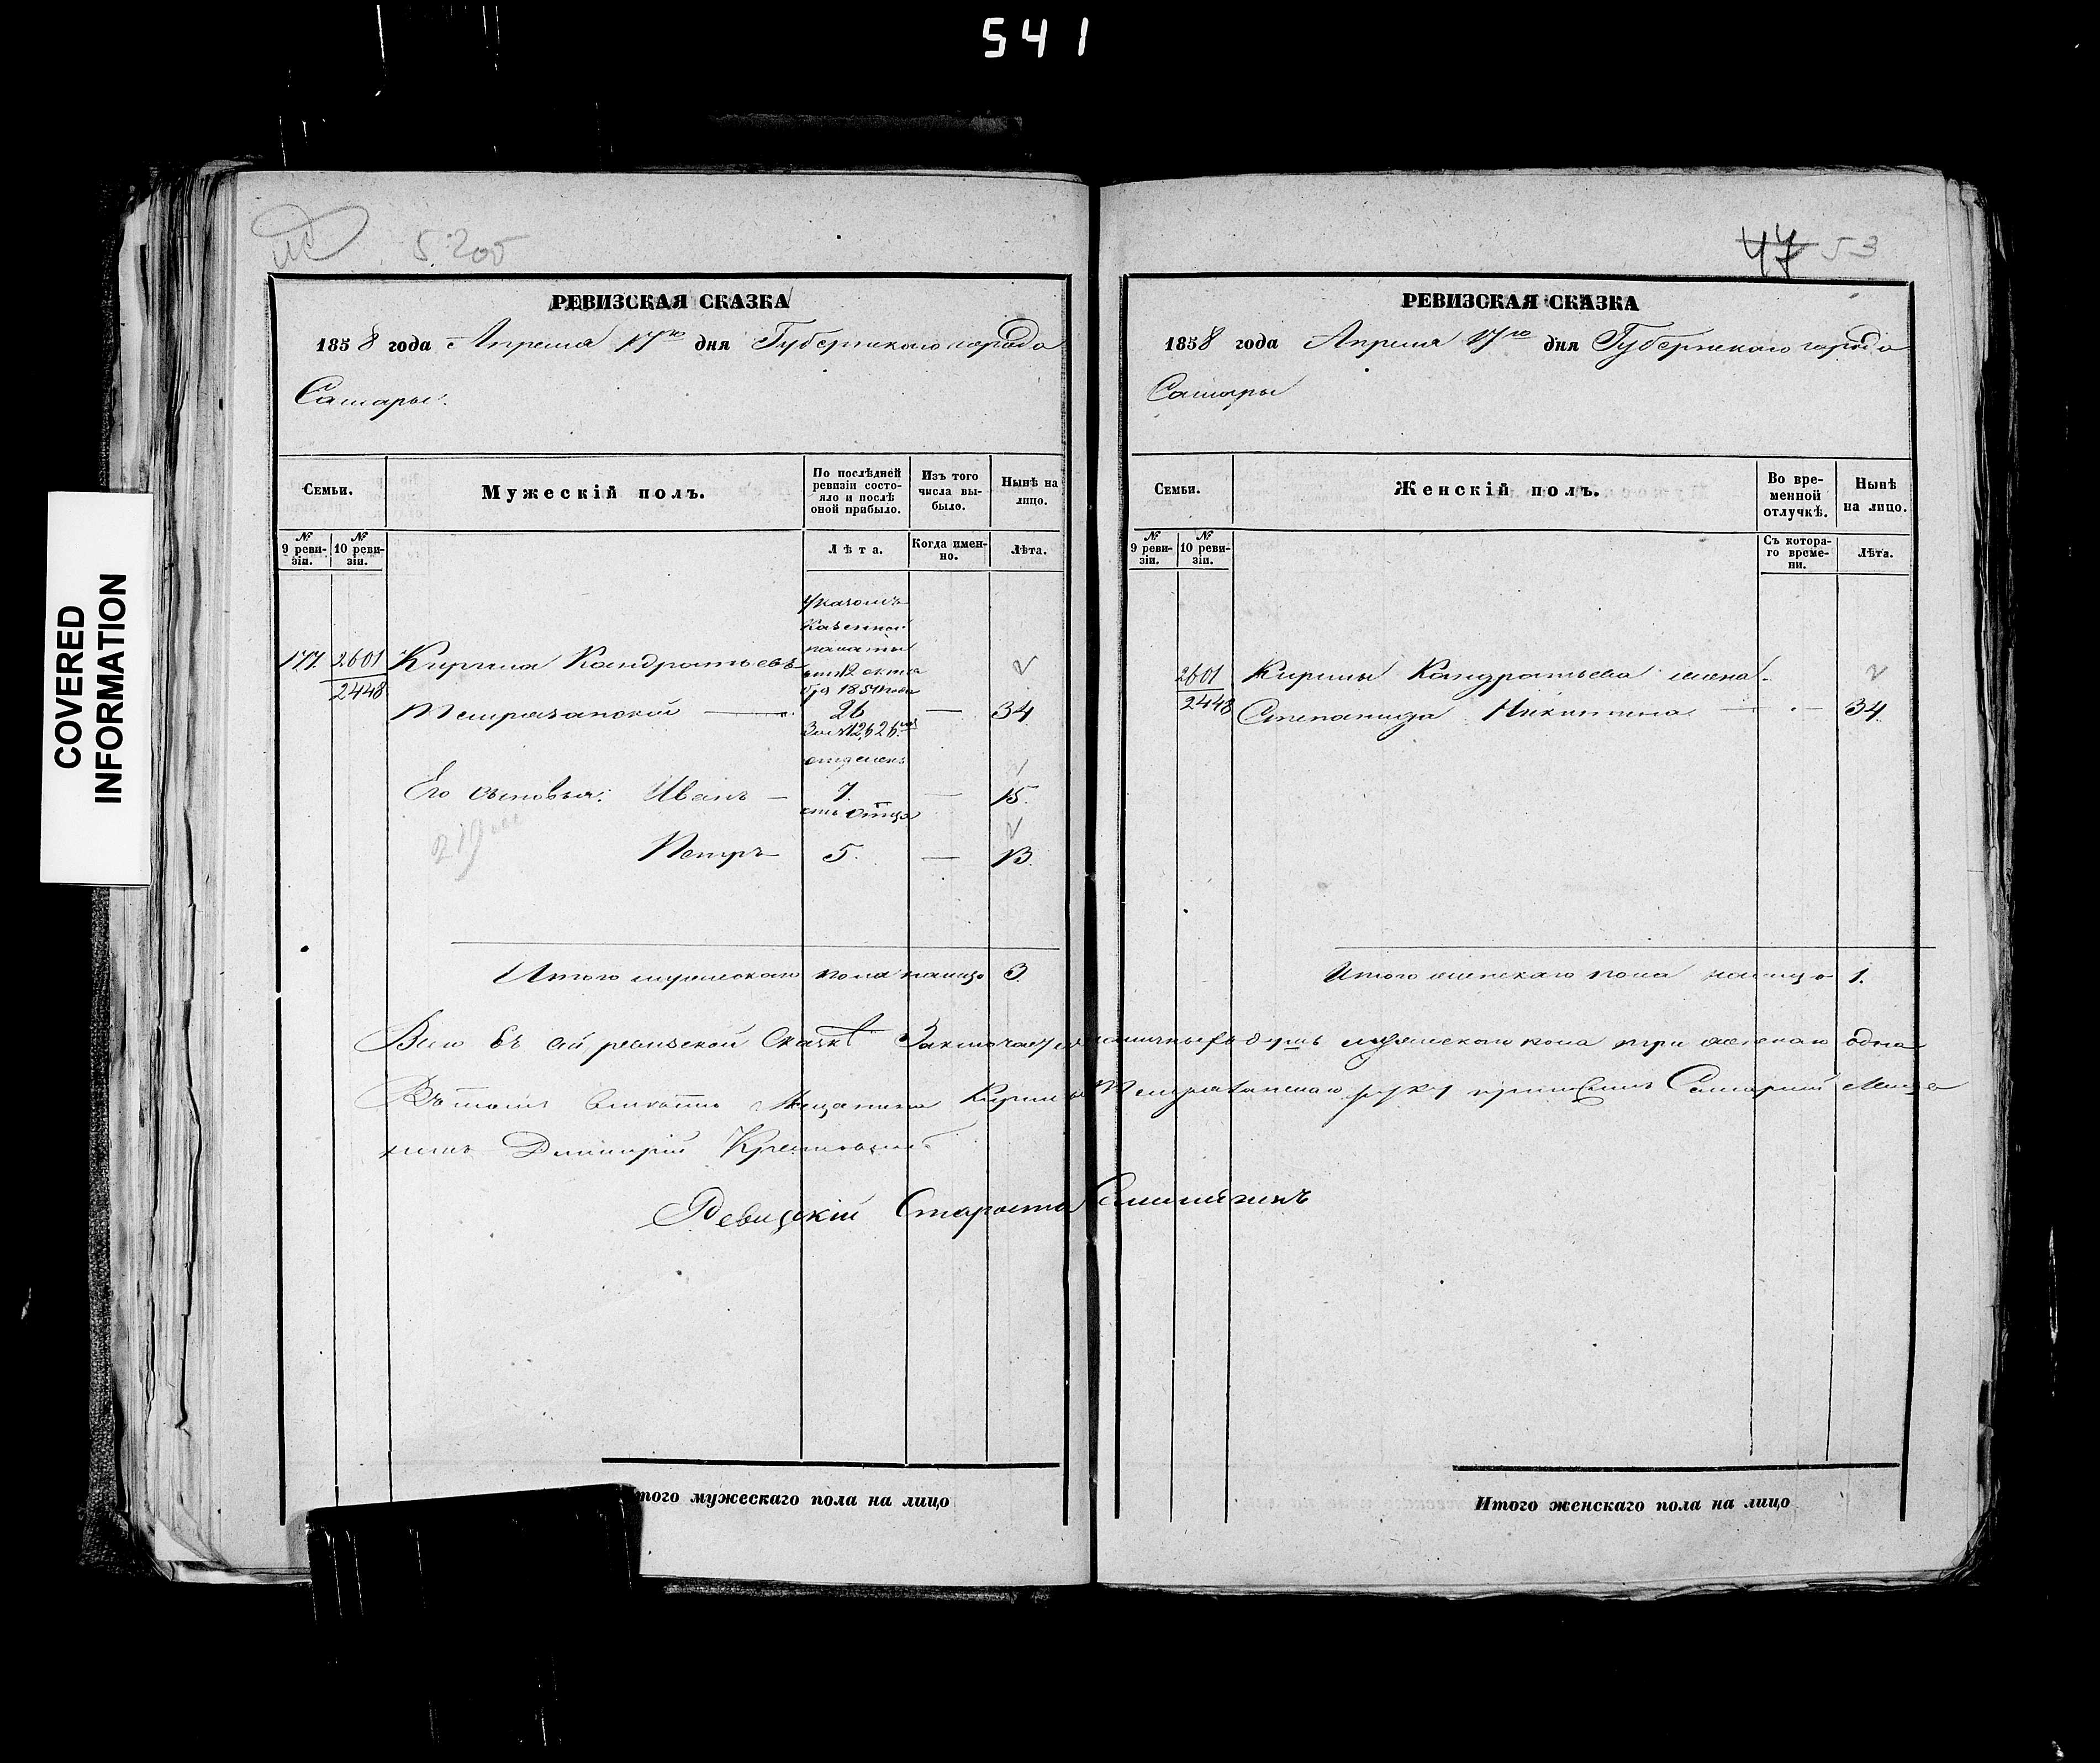 541
5.200
РЕВИЗСКАЯ СКАЗКА
1858 года Апреля 17го дня Губернскаго города
Самары.
Семьи.
№ 9 ревизіи.
№ 10 ревизіи.
Мужескій полъ.
По послѣдней ревизіи состояло и послѣ оной прибыло.
Лѣта.
Изъ того числа выбыло.
Когда именно.
Нынѣ на лицо.
Лѣта.
Указомъ
Казенной
палаты
177. 2601 Кирила Кандратьевъ от 12 октя
2448 бря 1851 года
26 — 34
За № 12,626
отделенъ
Его сыновья: Иванъ — 7. — 15.
отъ отца
Петръ 5. — 13.
Итого мужескаго пола налицо 3.
47 53
РЕВИЗСКАЯ СКАЗКА
1858 года Апреля 17го дня Губернскаго города
Самары
Семьи.
№ 9 ревизіи.
№ 10 ревизіи.
Женскій полъ.
Во временной отлучкѣ.
Съ котораго времени.
Нынѣ на лицо.
Лѣта.
2601 Кирилы Кандратьева жена
2448 Степанида Никитина — 34.
Итого женскаго пола налицо 1.
въ сей ревизской Сказкѣ Заключается наличныхъ душъ мужескаго пола три женскаго одна
Въ томъ Мещанина Кирилы руку приложилъ Самарскій Меща
нинъ Дмитрій
Ревизскій Староста
Итого мужескаго пола на лицо
Итого женскаго пола на лицо
COVERED
INFORMATION